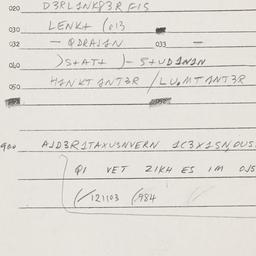 020 D3RL1NK83R FIS
030 LENK+ (013
032 - QDRAJAN 033 -
040 )S+AT+ )- S+UD1N1N
050 H1NKT ANT3R /LU.MTANT3R
900 AJD3R1TAXUSNVERN 1C3X1SN,OUS
QI VET ZIKH ES IM OJS
(/121103 (984